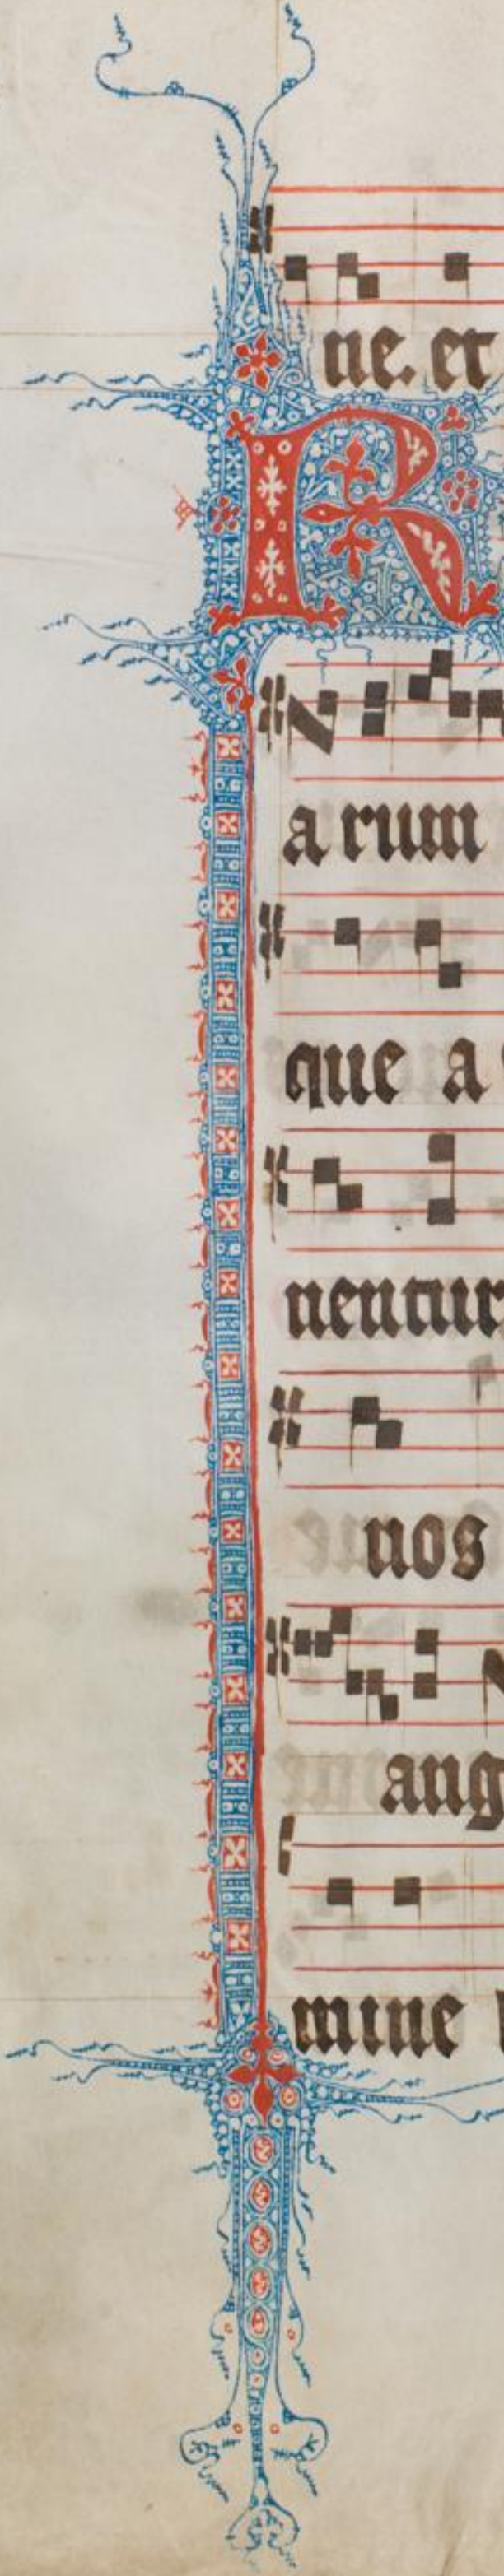 ne. et
R
arum
que a
nentur
nos
ang
mine